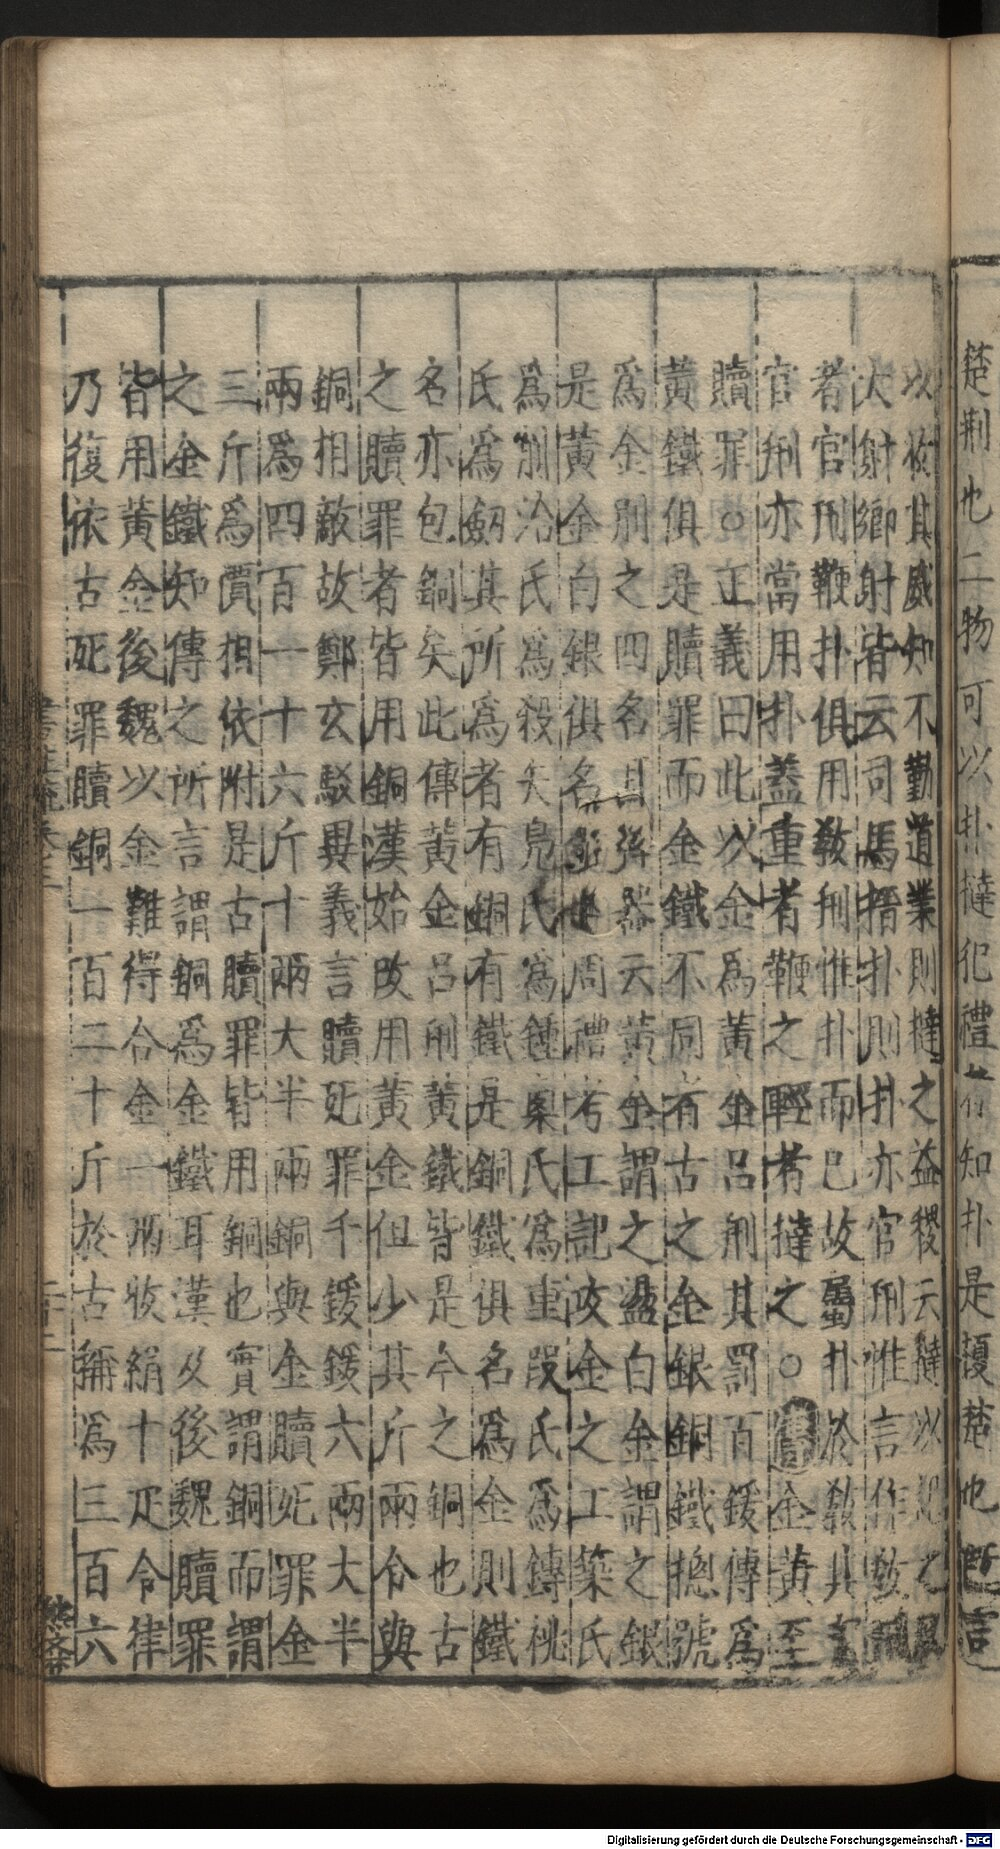 楚荆也二物可以扑撻犯禮者知扑是榎楚也既言
以收其威知不勤道業則撻之益稷云撻以記之
大射鄉射皆云司馬搢扑則扑亦官刑惟言作教刑
者官刑鞭扑俱用教刑惟扑而已故屬扑於教其實
官刑亦當用扑蓋重者鞭之輕者撻之○傳金黃至
贖罪○正義曰此以金爲黃金呂刑其罰百鍰傳爲
黃鐵俱是贖罪而金鐵不同者古之金銀銅鐵揔號
爲金別之四名耳釋器云黃金謂之璗白金謂之銀
是黃金白銀俱名金也周禮考工記攻金之工築氏
爲削冶氏爲殺矢鳧氏爲鍾㮚氏爲重段氏爲鏄桃
氏爲劔其所爲者有銅有鐵是銅鐵俱名爲金則鐵
名亦包銅矣此傳黃金呂刑黃鐵皆是今之銅也古
之贖罪者皆用銅漢始改用黃金但少其斤兩令與
銅相敵故鄭玄駁異義言贖死罪千鍰鍰六兩大半
兩爲四百一十六斤十兩大半兩銅與金贖死罪金
三斤爲價相依附是古贖罪皆用銅也實謂銅而謂
之金鐵知傳之所言謂銅爲金鐵耳漢及後魏贖罪
皆用黃金後魏以金難得合金一兩收絹十疋今律
乃復依古死罪贖銅一百二十斤於古稱爲三百六
Digitalisierung gefördert durch die Deutsche Forschungsgemeinschaft - DFG